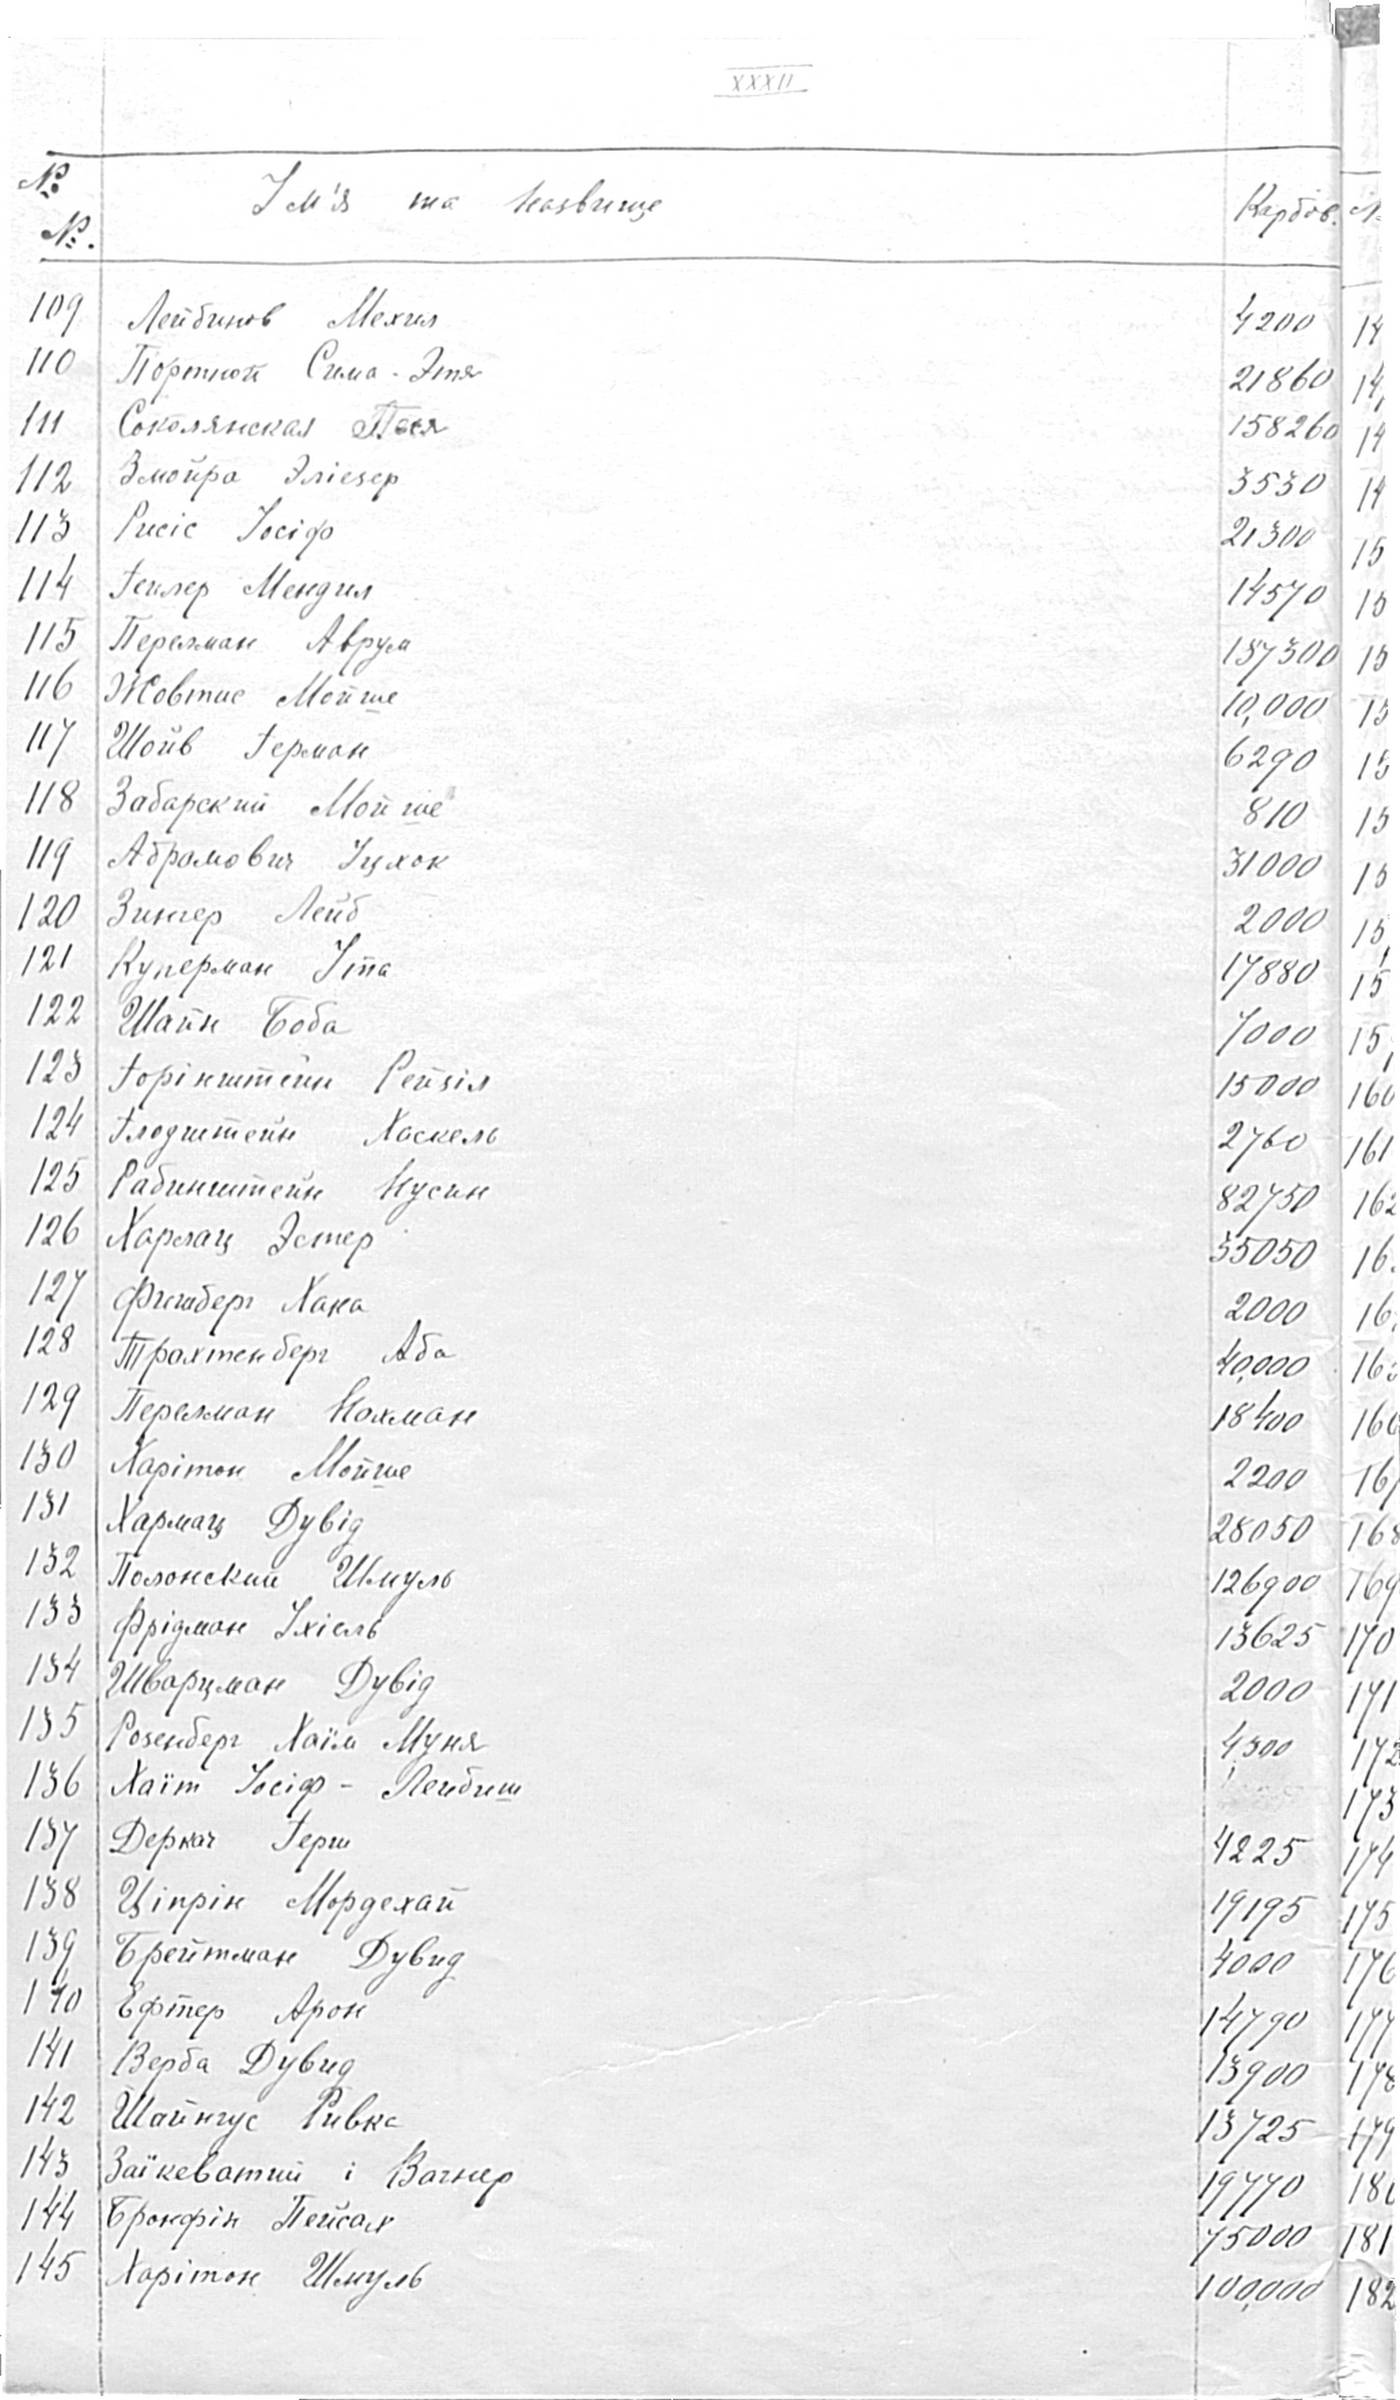 XXXII
№ №. Ім'я та назвище Карбов. №
109 Лейбинов Мехил 4200 14
110 Портной Сима - Этя 21860 14
111 Соколянская Песя 158260 14
112 Змойра Эліезер 3530 14
113 Рисіс Іосіф 21300 15
114 Геклер Мендил 14570 15
115 Перелман Аврум 137300 15
116 Жовтис Мойше 10,000 15
117 Шойв Герман 6290 15
118 Забарский Мойше 810 15
119 Абрамович Іцхок 31000 15
120 Зингер Лейб 2000 15
121 Куперман Іта 17880 15
122 Шайн Боба 7000 15
123 Горінштейн Рейзіл 15000 160
124 Глодштейн Хаскель 2760 161
125 Рабинштейн Нусин 82750 162
126 Харлац Эстер 35050 16
127 Фишберг Хана 2000 16
128 Трахтенберг Аба 40,000 16
129 Перелман Нахман 18400 166
130 Харітон Мойше 2200 167
131 Хармац Дувід 28050 168
132 Полонский Шмуль 126900 169
133 Фрідман Іхіель 13625 170
134 Шварцман Дувід 2000 171
135 Розенберг Хаїм Муня 4300 172
136 Хаїт Іосіф - Лейбиш 173
137 Деркач Герш 4225 174
138 Ціпрін Мордехай 19195 175
139 Брейтман Дувид 4000 176
140 Ефтер Арон 14790 177
141 Верба Дувид 13900 178
142 Шайнгус Ривка 13725 179
143 Заїкеватий і Вагнер 19770 180
144 Бронфін Пейсах 75000 181
145 Харітон Шмуль 100,000 182